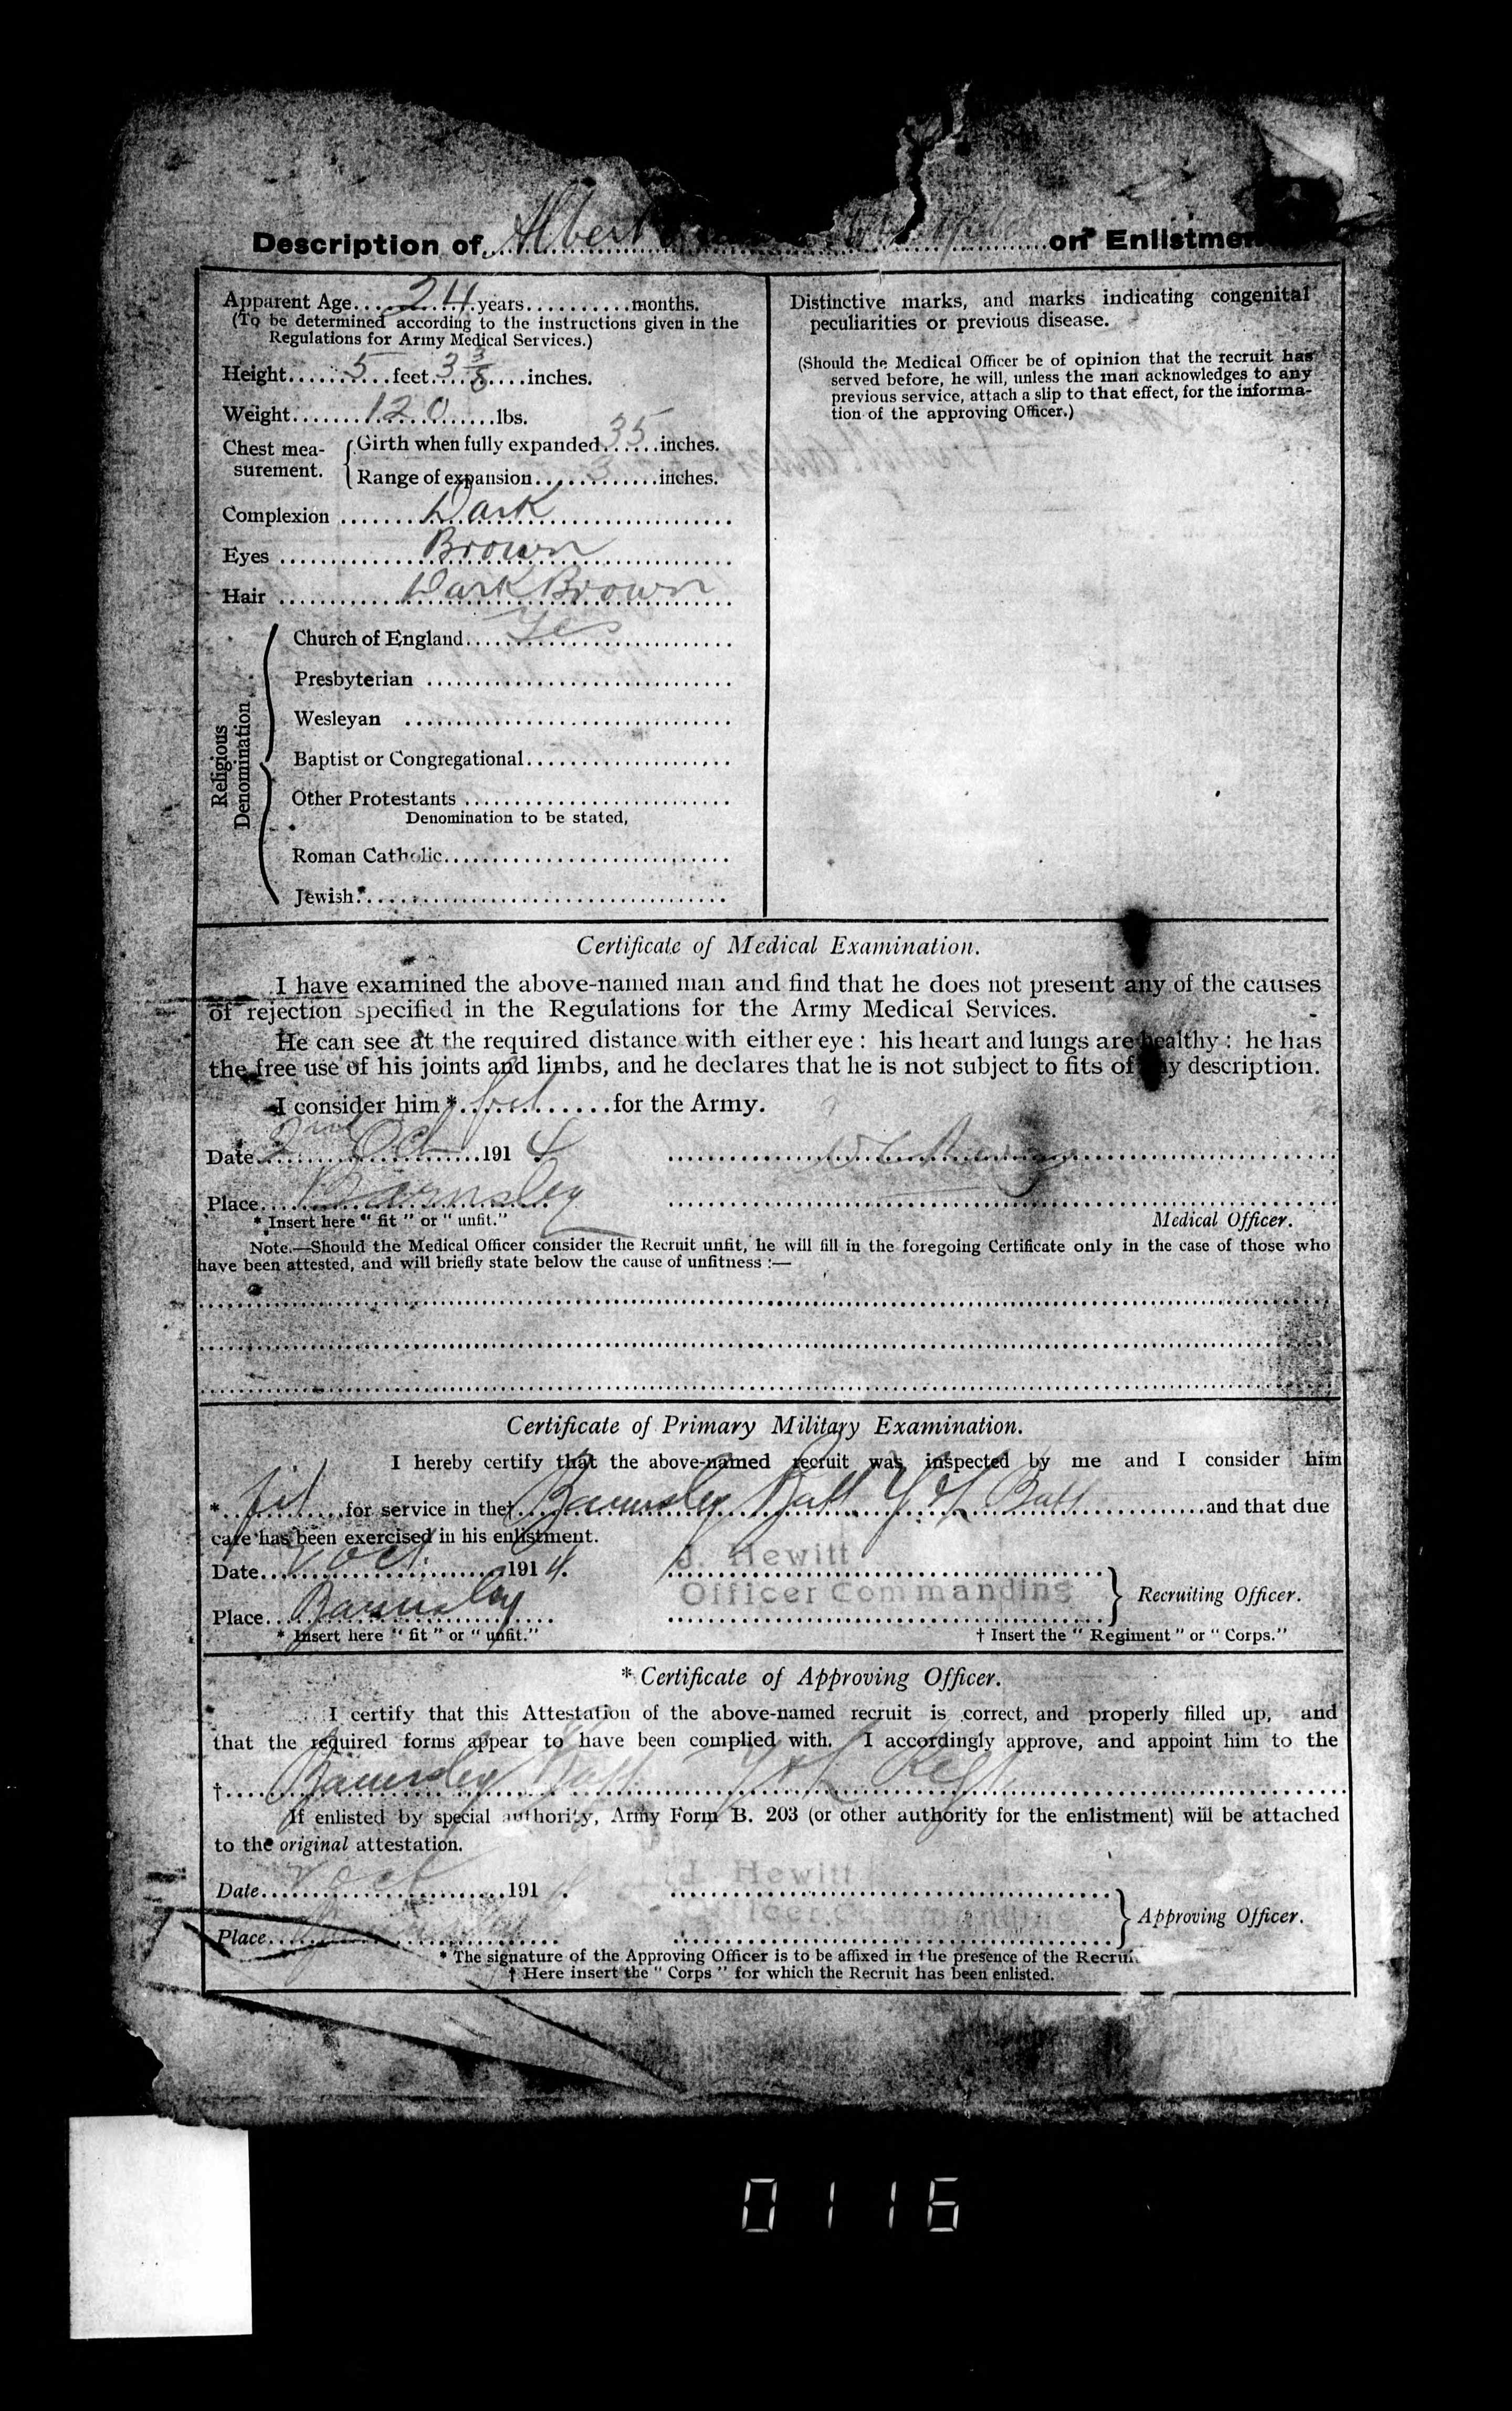 Description of Albert on Enlistmen
Apparent Age....24 years..........months.
(To be determined according to the instructions given in the
Regulations for Army Medical Services.)
Height....5....feet 3 3/8 inches.
Weight....120....lbs.
Chest mea-
surement.
Girth when fully expanded 35 inches.
Range of expansion 3 inches.
Complexion Dark
Eyes Brown
Hair Dark Brown
Religious
Denomination
Church of England Yes
Presbyterian
Wesleyan
Baptist or Congregational
Other Protestants
Denomination to be stated,
Roman Catholic
Jewish
Distinctive marks, and marks indicating congenital
peculiarities or previous disease.
(Should the Medical Officer be of opinion that the recruit has
served before, he will, unless the man acknowledges to any
previous service, attach a slip to that effect, for the informa-
tion of the approving Officer.)
Certificate of Medical Examination.
I have examined the above-named man and find that he does not present any of the causes
of rejection specified in the Regulations for the Army Medical Services.
He can see at the required distance with either eye : his heart and lungs are healthy : he has
the free use of his joints and limbs, and he declares that he is not subject to fits of any description.
I consider him * fit for the Army.
Date 2nd Oct 1914
Place Barnsley
* Insert here “ fit ” or “ unfit.”
Medical Officer.
Note.—Should the Medical Officer consider the Recruit unfit, he will fill in the foregoing Certificate only in the case of those who
have been attested, and will briefly state below the cause of unfitness :—
Certificate of Primary Military Examination.
I hereby certify that the above-named recruit was inspected by me and I consider him
* fit for service in the† Barnsley Batt Y & L Batt and that due
care has been exercised in his enlistment.
Date 2 Oct. 1914.
J. Hewitt
Officer Commanding
Recruiting Officer.
Place Barnsley
* Insert here “ fit ” or “ unfit.”
† Insert the “ Regiment ” or “ Corps.”
* Certificate of Approving Officer.
I certify that this Attestation of the above-named recruit is correct, and properly filled up, and
that the required forms appear to have been complied with. I accordingly approve, and appoint him to the
† Barnsley Batt Y & L Regt
If enlisted by special authority, Army Form B. 203 (or other authority for the enlistment) will be attached
to the original attestation.
Date 2 Oct 191
J. Hewitt
Officer Commanding
Approving Officer.
Place
* The signature of the Approving Officer is to be affixed in the presence of the Recruit.
† Here insert the “ Corps ” for which the Recruit has been enlisted.
0116